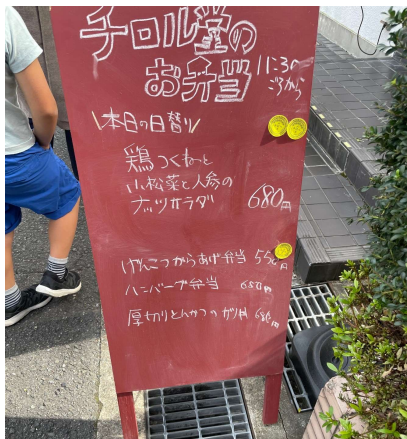 チロル堂の
お弁当
11じころから
\本日の日替り/
鶏つくねっと
小松菜と人参の
ナッツサラダ 680円
げんこつからあげ弁当 550円
ハンバーグ弁当 680円
厚切りとんかつの 680円